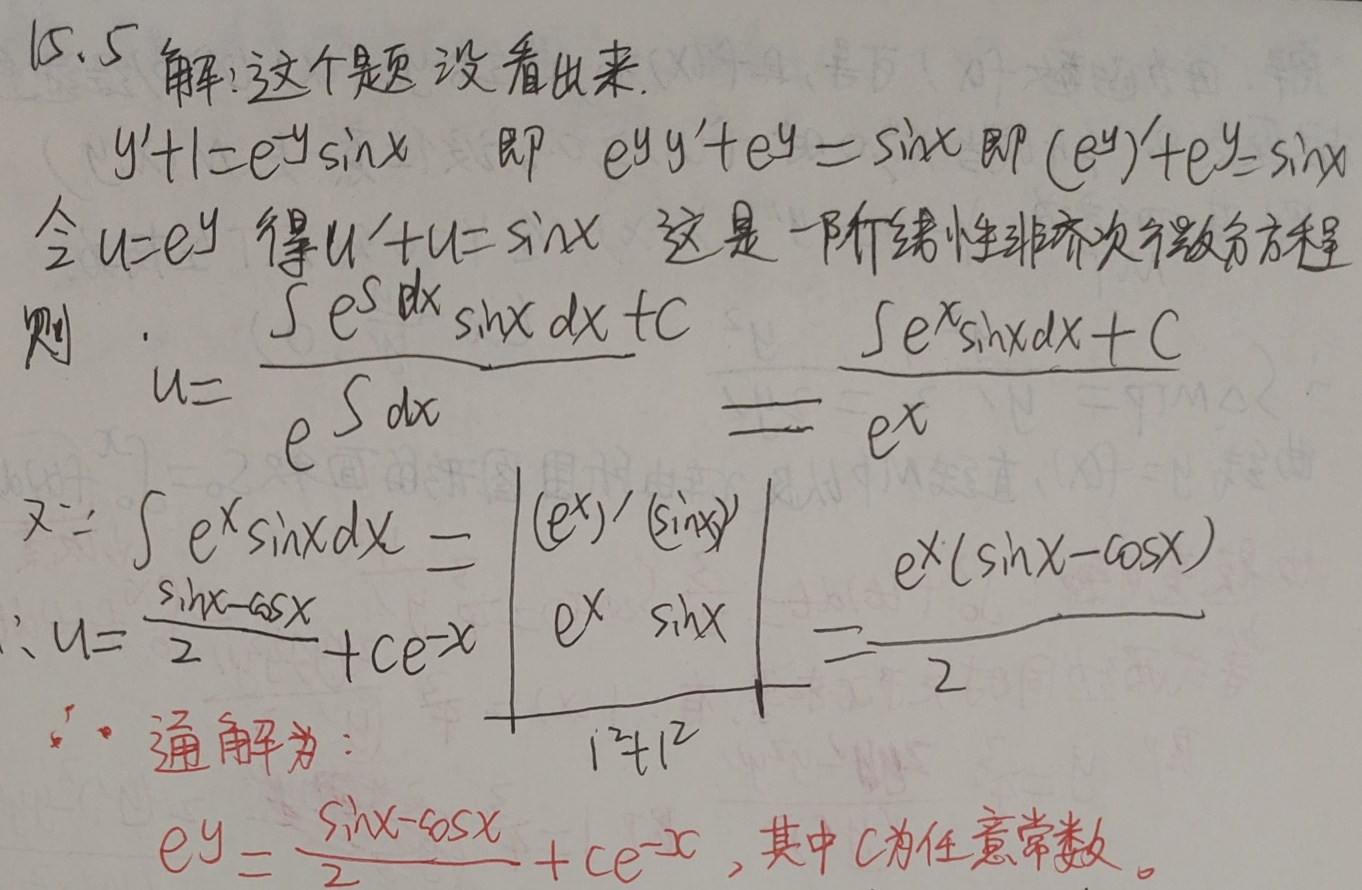 15.5 解:这个题没看出来.
y'+1=e^{-y}sinx 即 e^y y'+e^y=sinx 即 (e^y)'+e^y=sinx
令u=e^y 得u'+u=sinx 这是一阶线性非齐次微分方程
则 u= \frac{∫e^{∫dx}sinxdx+C}{e^{∫dx}} = \frac{∫e^x sinxdx+C}{e^x}
又∵ ∫e^x sinxdx = \frac{\begin{vmatrix}(e^x)' & (sinx)' \\ e^x & sinx\end{vmatrix}}{1^2+1^2} = \frac{e^x(sinx-cosx)}{2}
∴ u= \frac{sinx-cosx}{2}+ce^{-x}
∴ 通解为:
e^y= \frac{sinx-cosx}{2}+ce^{-x},其中C为任意常数。